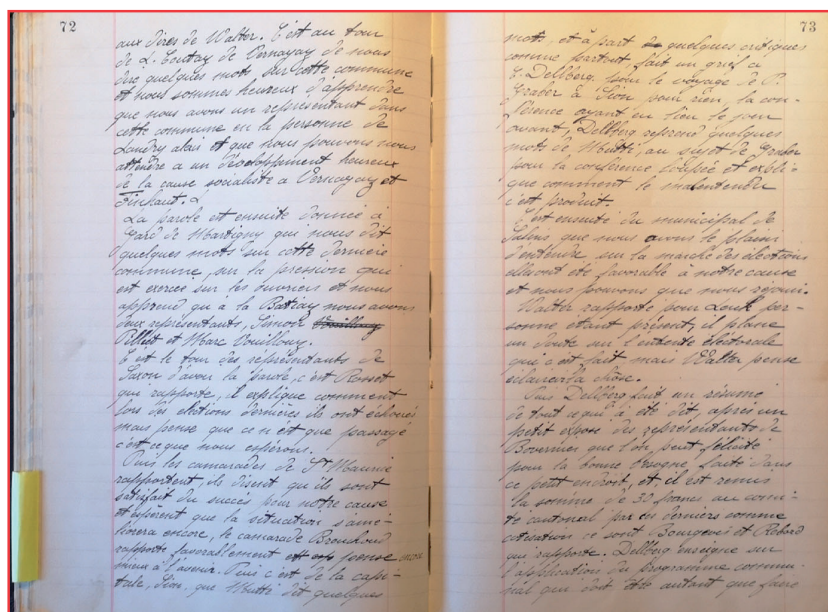 72
aux dires de Walter. C'est au tour
de L. Coutaz de Vernayaz de nous
dire quelques mots, sur cette commune
et nous sommes heureux d'apprendre
que nous avons un représentant dans
cette commune en la personne de
Landry alois et que nous pouvons nous
attendre a un developpement heureux
de la cause socialiste a Vernayaz et
Finhaut.
La parole est ensuite donnée à
Gard de Martigny qui nous dit
quelques mots sur cette dernière
commune, sur la pression qui
est exercée sur les ouvriers et nous
apprend qu'à la Batiaz nous avons
deux représentants, Simon Vouilloug
Pillet et Marc Vouilloug.
C'est le tour des représentants de
Saxon d'avoir la parole, c'est Rosset
qui rapporte, il explique comment
lors des élections dernières ils ont échoués
mais pense que ce n'est que passagé
c'est ce que nous espérons.
Puis les camarades de St Maurice
rapportent, ils disent qu'ils sont
satisfait du succès pour notre cause
et espèrent que la situation s'amé-
liorera encore, le camarade Brouchoud
rapporte favorablement et pense encore
mieux à l'avenir. Puis c'est de la capi-
tale, Sion, que Mutti dit quelques
73
mots, et à part de quelques critiques
comme partout, fait un grief a
C. Dellberg, pour le voyage de P.
Graber à Sion pour rien, la con-
ference ayant eu lieu le jour
avant, Dellberg reprend quelques
mots de Mutti, au sujet de Graber
pour la conférence loupée et expli-
que comment le malentendu
c'est produit.
C'est ensuite du municipal de
Salins que nous avons le plaisir
d'entendre sur la marche des élections
elles ont été favorable à notre cause
et nous pouvons que nous réjouir.
Walter rapporte pour Leuk per-
sonne étant présent, il plane
un doute sur l'entente électorale
qui c'est fait mais Walter pense
éclaircir la chose.
Puis Dellberg fait un résumé
de tout ce qui à été dit, après un
petit exposé des représentants de
Bovernier que l'on peut félicité
pour la bonne besogne faite dans
ce petit endroit, et il est remis
la somme de 30 francs au comi-
té cantonal par ces derniers comme
cotisation ce sont Bourgeois et Rebord
qui rapporte. Dellberg enseigne sur
l'application du programme commu-
nal qui doit être autant que faire